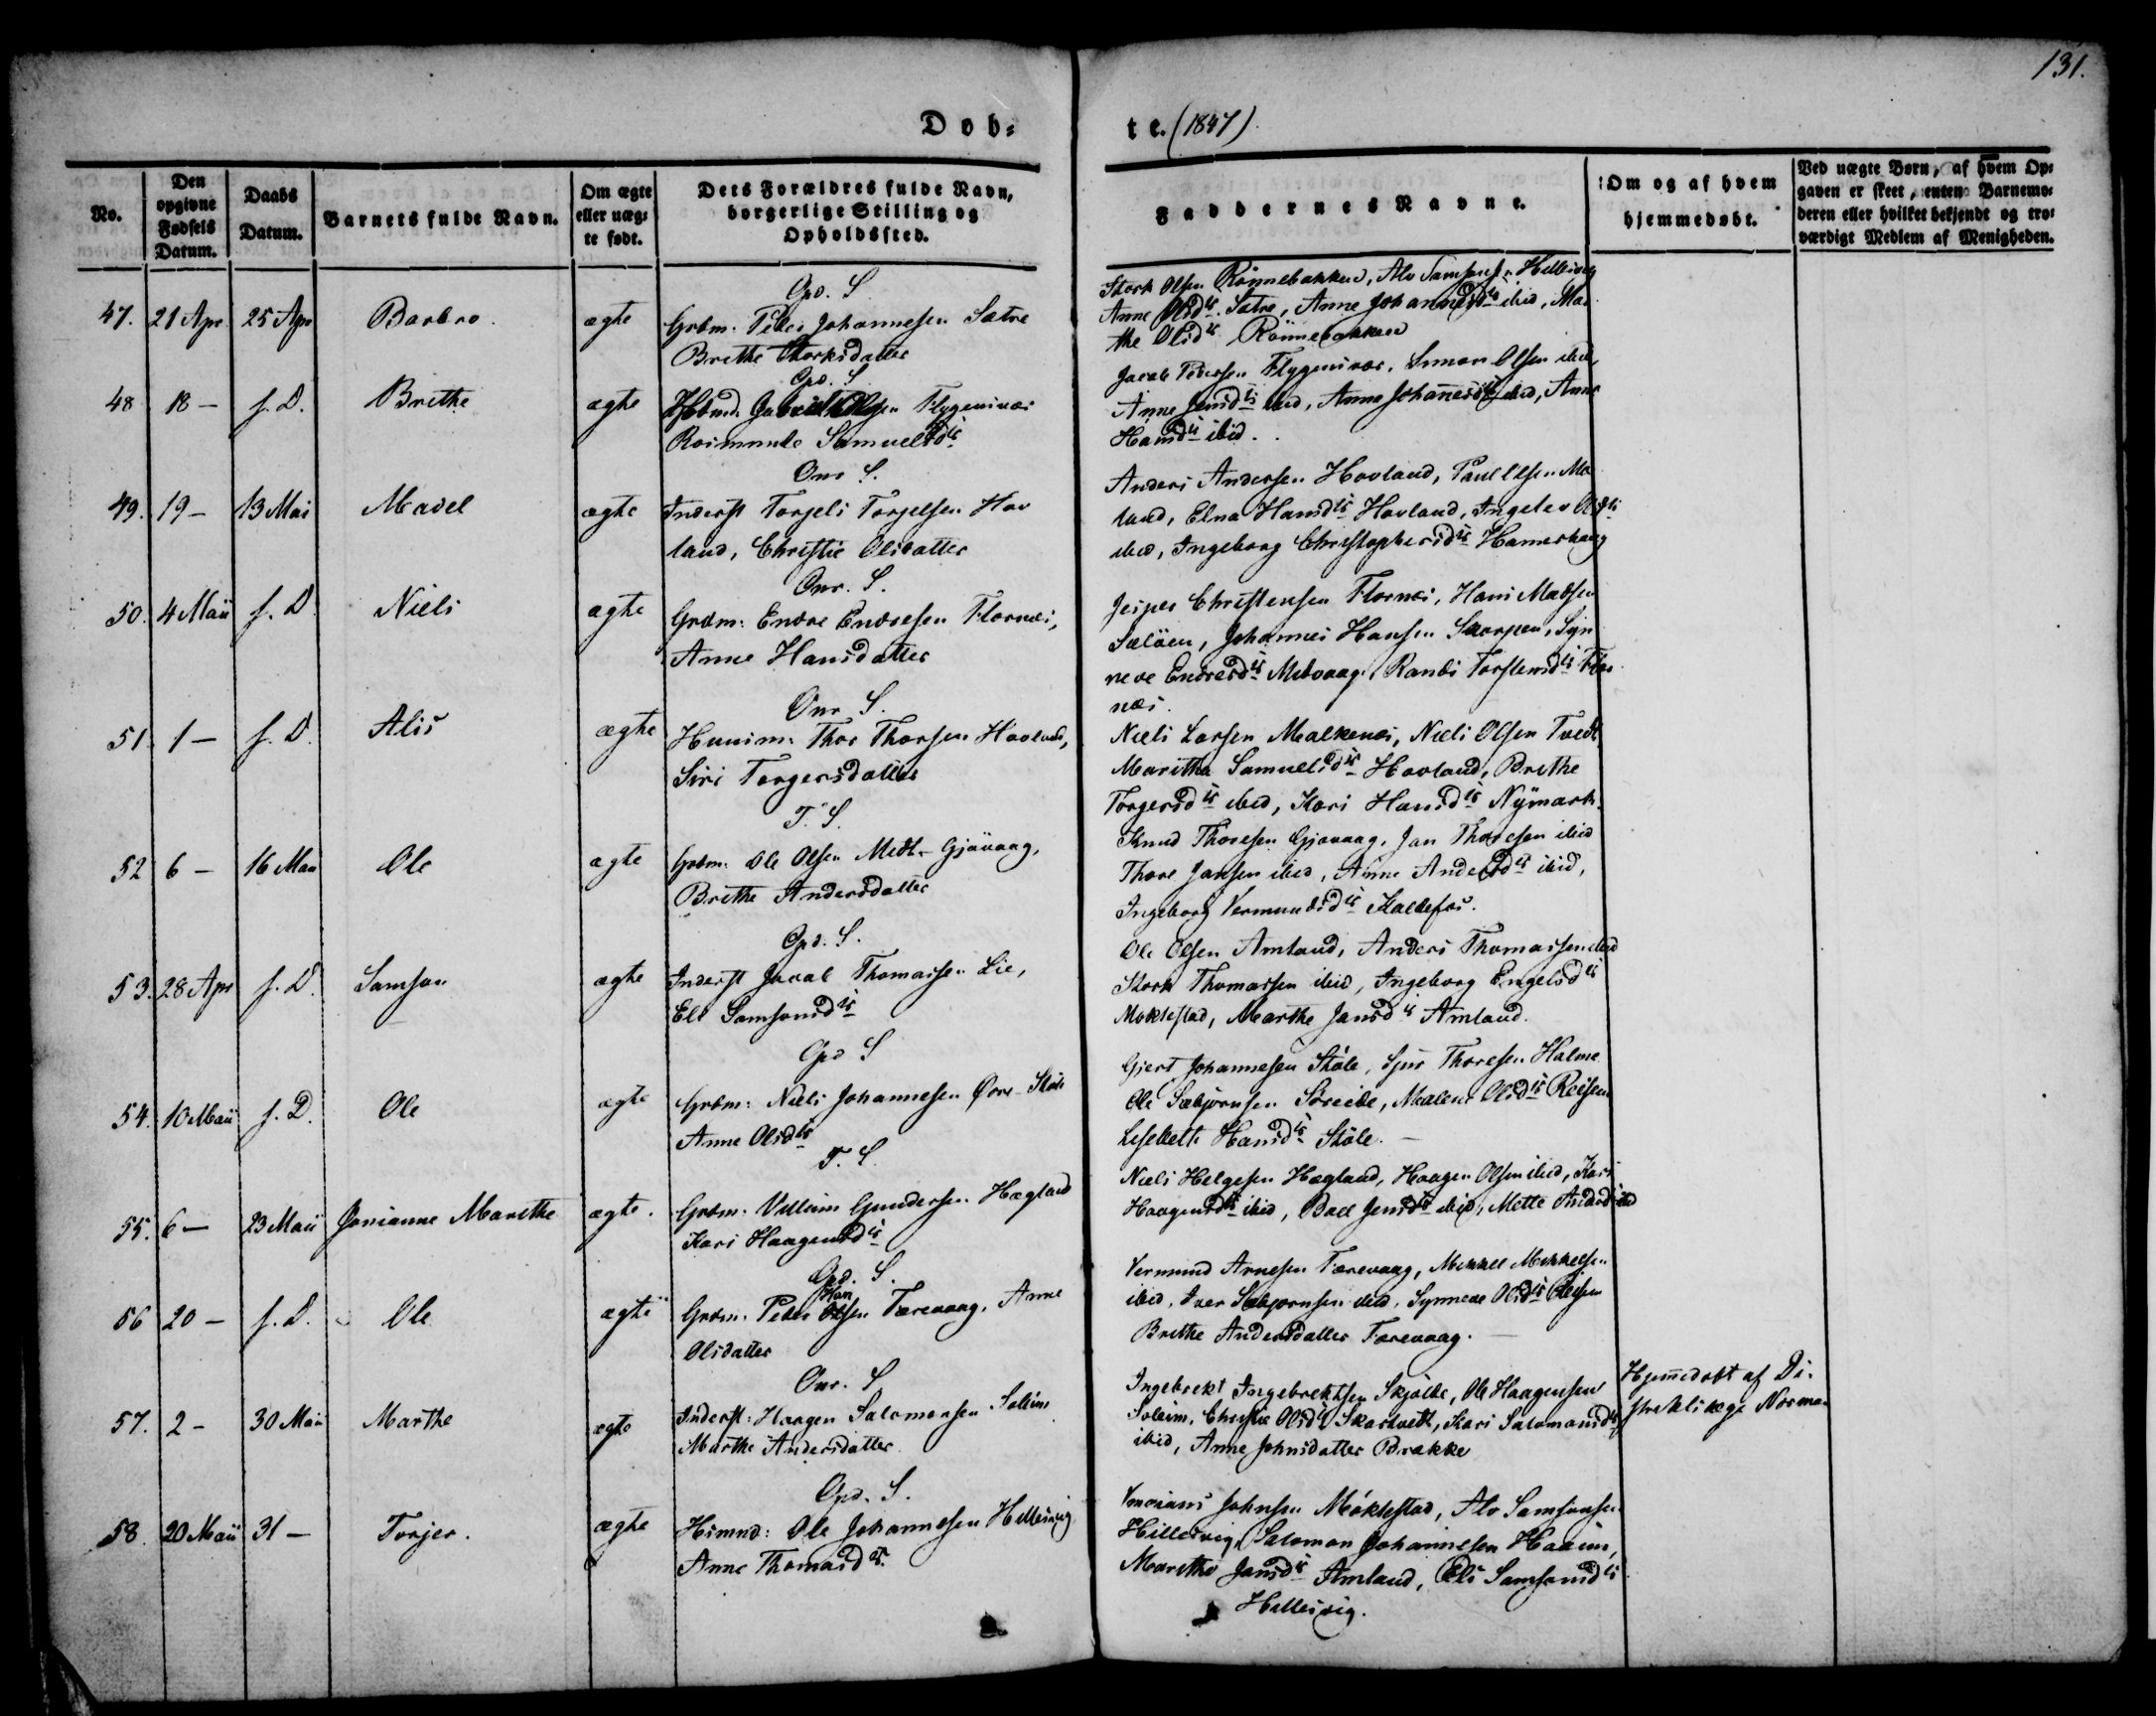 131.
Døb-
te. (1847)
No.
Den opgivne Fødsels Datum.
Daabs Datum.
Barnets fulde Navn.
Om ægte eller uægte født.
Dets Forældres fulde Navn, borgerlige Stilling og Opholdssted.
Faddernes Navne.
Om og af hvem hjemmedøbt.
Ved uægte Børn, af hvem Opgaven er skeet, enten Barnemoderen eller hvilket bekjendt og troværdigt Medlem af Menigheden.
47. 21 Apr 25 Apr Barbro. ægte
Opd. S.
Grdm. Peder Johannesen Sætre
Brithe Storksdatter
Stork Olsen Rönnebakken, Alv Samsonsen Hillesvig
Anne Olsdtr. Sætre, Anne Johannesdtr ibid, Mar
the Olsdtr Rönnebakken
48 18 — s. D. Brithe ægte
Opd. S
Hsmd. Gabriel Olsen Flygensvær
Rasmunde Samuelsdtr
Jacob Pedersen Flygensvær, Simon Olsen ibid,
Anne Jensdtr ibid, Anne Johanesdtr ibid, Anne
Hansdtr ibid.
49. 19 — 13 Mai Madel ægte
Onr S.
Inderst Torjels Torjelsen Hov
land, Christie Olsdatter
Anders Andersen Hovland, Paul Olsen
land, Elna Hansdtr Hovland, Ingelev Olsdtr
ibid, Ingeborg Christophersdtr Hamerhaug
50. 4 Maii s. D. Niels ægte
Onr. S.
Grdm: Endre Endresen Flornæs,
Anne Hansdatter
Jesper Christensen Flornæs, Hans Madsen
Sælöen, Johannes Hansen Skorpen, Syn
neve Endresdtr Midvaag, Randi Torstensdtr Flor
næs.
51. 1 — s. D. Alis ægte
Onr S.
Huusm. Thor Thorsen Hovland,
Siri Torgersdatter
Niels Larsen Malkenæs, Niels Olsen Tvedt,
Maritha Samuelsdtr Hovland, Brithe
Torgersdtr ibid, Kari Hansdtr Nymark.
52 6 — 16 Maii Ole ægte
T. S.
Grdm. Ole Olsen Medt-Gjövaag,
Brithe Andersdatter
Knud Thoresen Gjøvaag, Jan Thoresen ibid
Thore Jansen ibid, Anne Andersdtr ibid,
Ingeborg Vermundsdtr Kaldefos.
53. 28 Apr s. D. Samson ægte
Opd. S.
Inderst Jacob Thomassen Lie,
Eli Samsonsdtr
Ole Olsen Amland, Anders Thomassen ibid
Stork Thomassen ibid, Ingeborg Engelsdtr
Møklestad, Marthe Jansdtr Amland.
54. 10 Maii s. D. Ole ægte
Opd S
Grdm: Niels Johannesen Øvre-Støle
Anne Olsdtr
Gjert Johannesen Støle, Sjur Thoresen Halme
Ole Sæbjørnsen Søreide, Malene Olsdtr Reisen
Lisebeth Hansdtr Støle. —
55. 6 — 23 Maii Janianne Marethe ægte.
T. S.
Grdm. Villum Gundersen Hægland
Kari Haagensdtr
Niels Helgesen Hægland, Haagen Olsen ibid, Kari
Haagensdtr ibid, Boel Jensdtr ibid, Mette Andersd ibid
56 20 — s. D. Ole ægte
Opd. S.
Han
Grdm. Peder Olsen Færevaag, Anne
Olsdatter
Vermund Arnesen Færevaag, Mikkel Mikkelsen
ibid, Iver Sæbjørnsen ibid, Synneve Olsdtr Reisen
Brithe Andersdatter Færevaag.
57. 2 — 30 Maii Marthe ægte
Onr. S.
Inderst: Haagen Salomonsen Soleim
Marthe Andersdatter
Ingebrekt Ingebrektsen Skjølde, Ole Haagensen
Soleim, Christie Olsdtr Skartvedt, Kari Salomonsdtr
ibid, Anne Johnsdatter Brække
Hjemmedøbt af Di-
striktslæge Norman
58. 20 Maii 31 — Torjer. ægte
Opd. S.
Hsmnd: Ole Johannesen Hillesvig
Anne Thomasdtr.
Johnsen Møklestad, Alv Samsonsen
Hillesvig, Salomon Johannesen Haaeim,
Marithe Jansdtr Amland, Eli Samsonsdtr
Hillesvig.